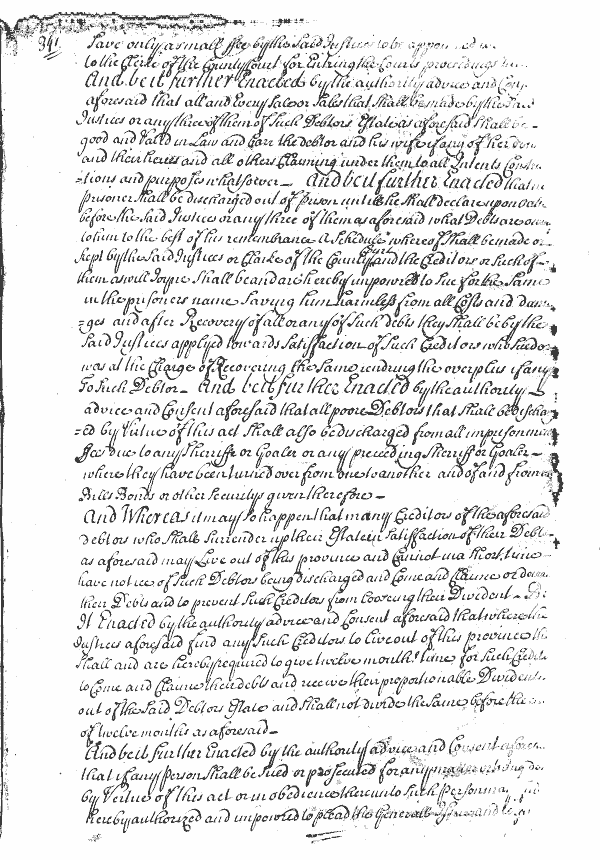 341
Save only a small ffee by the Said Justices to be appon
to the Clerke of the County Court for Entring the Courts proceedings
And be it further Enacted by the authority advice and Con
aforesaid that all and Every Sale or Sales that Shall be made by the Said
Justices or any three of them of Such Debtors Estate as aforesaid Shall be
good and Valid in Law and barr the debtor and his wife if any of her dow
and their heires and all others Claiming under them to all Intents Constru
=tions and purposes whatsoever — And be it further Enacted that no
prisoner Shall be discharged out of prison untill he Shall declare upon oath
before the Said Justices or any three of them as aforesaid what Debts are owin
to him to the best of his remembrance A Schedule whereof Shall be made or
kept by the Said Justices or Clarke of the County Court and the Creditors or Such of
them as will Joyne Shall be and are hereby impowred to Sue for the Same
in the prisoners name Saveing him harmless from all Costs and dam
=ges and after Recovery of all or any of Such debts they Shall be by the
Said Justices applyed towards Satisfaction of Such Creditors who Sued or
was at the Charge of Recovering the Same rendring the overplus if any
To Such Debtor — And be it further Enacted by the authority —
advice and Consent aforesaid that all poore Debtors that Shall be discha
=ed by Virtue of this act Shall also be discharged from all imprisonment
ffees due to any Sherriffe or Goaler or any preceding Sherriff or Goaler —
where they have been turned over from one to another and of and from
Bills Bonds or other Securitys given therefore —
And Whereas it may So happen that many Creditors of the aforesaid
debtors who Shall Surrender up their Estate in Satisfaction of their Debts
as aforesaid may Live out of this province and Cannot in a Short time
have notice of Such Debtors being discharged and Come and Claime or dema
their Debts and to prevent Such Creditors from Looseing their Dividend — Be
It Enacted by the authority advice and Consent aforesaid that where the
Justices aforesaid find any Such Creditors to Live out of this province the
Shall and are hereby required to give twelve months time for Such Credit
to Come and Claime their debts and receive their proportionable Dividens
out of the Said Debtors Estate and Shall not divide the Same before the
of twelve months as aforesaid —
And be it Further Enacted by the authority advice and Consent afores
that if any person Shall be Sued or prosecuted for any
by Virtue of this act or in obedience thereunto Such person may
hereby authorized and impowred to plead the Generall Issue and